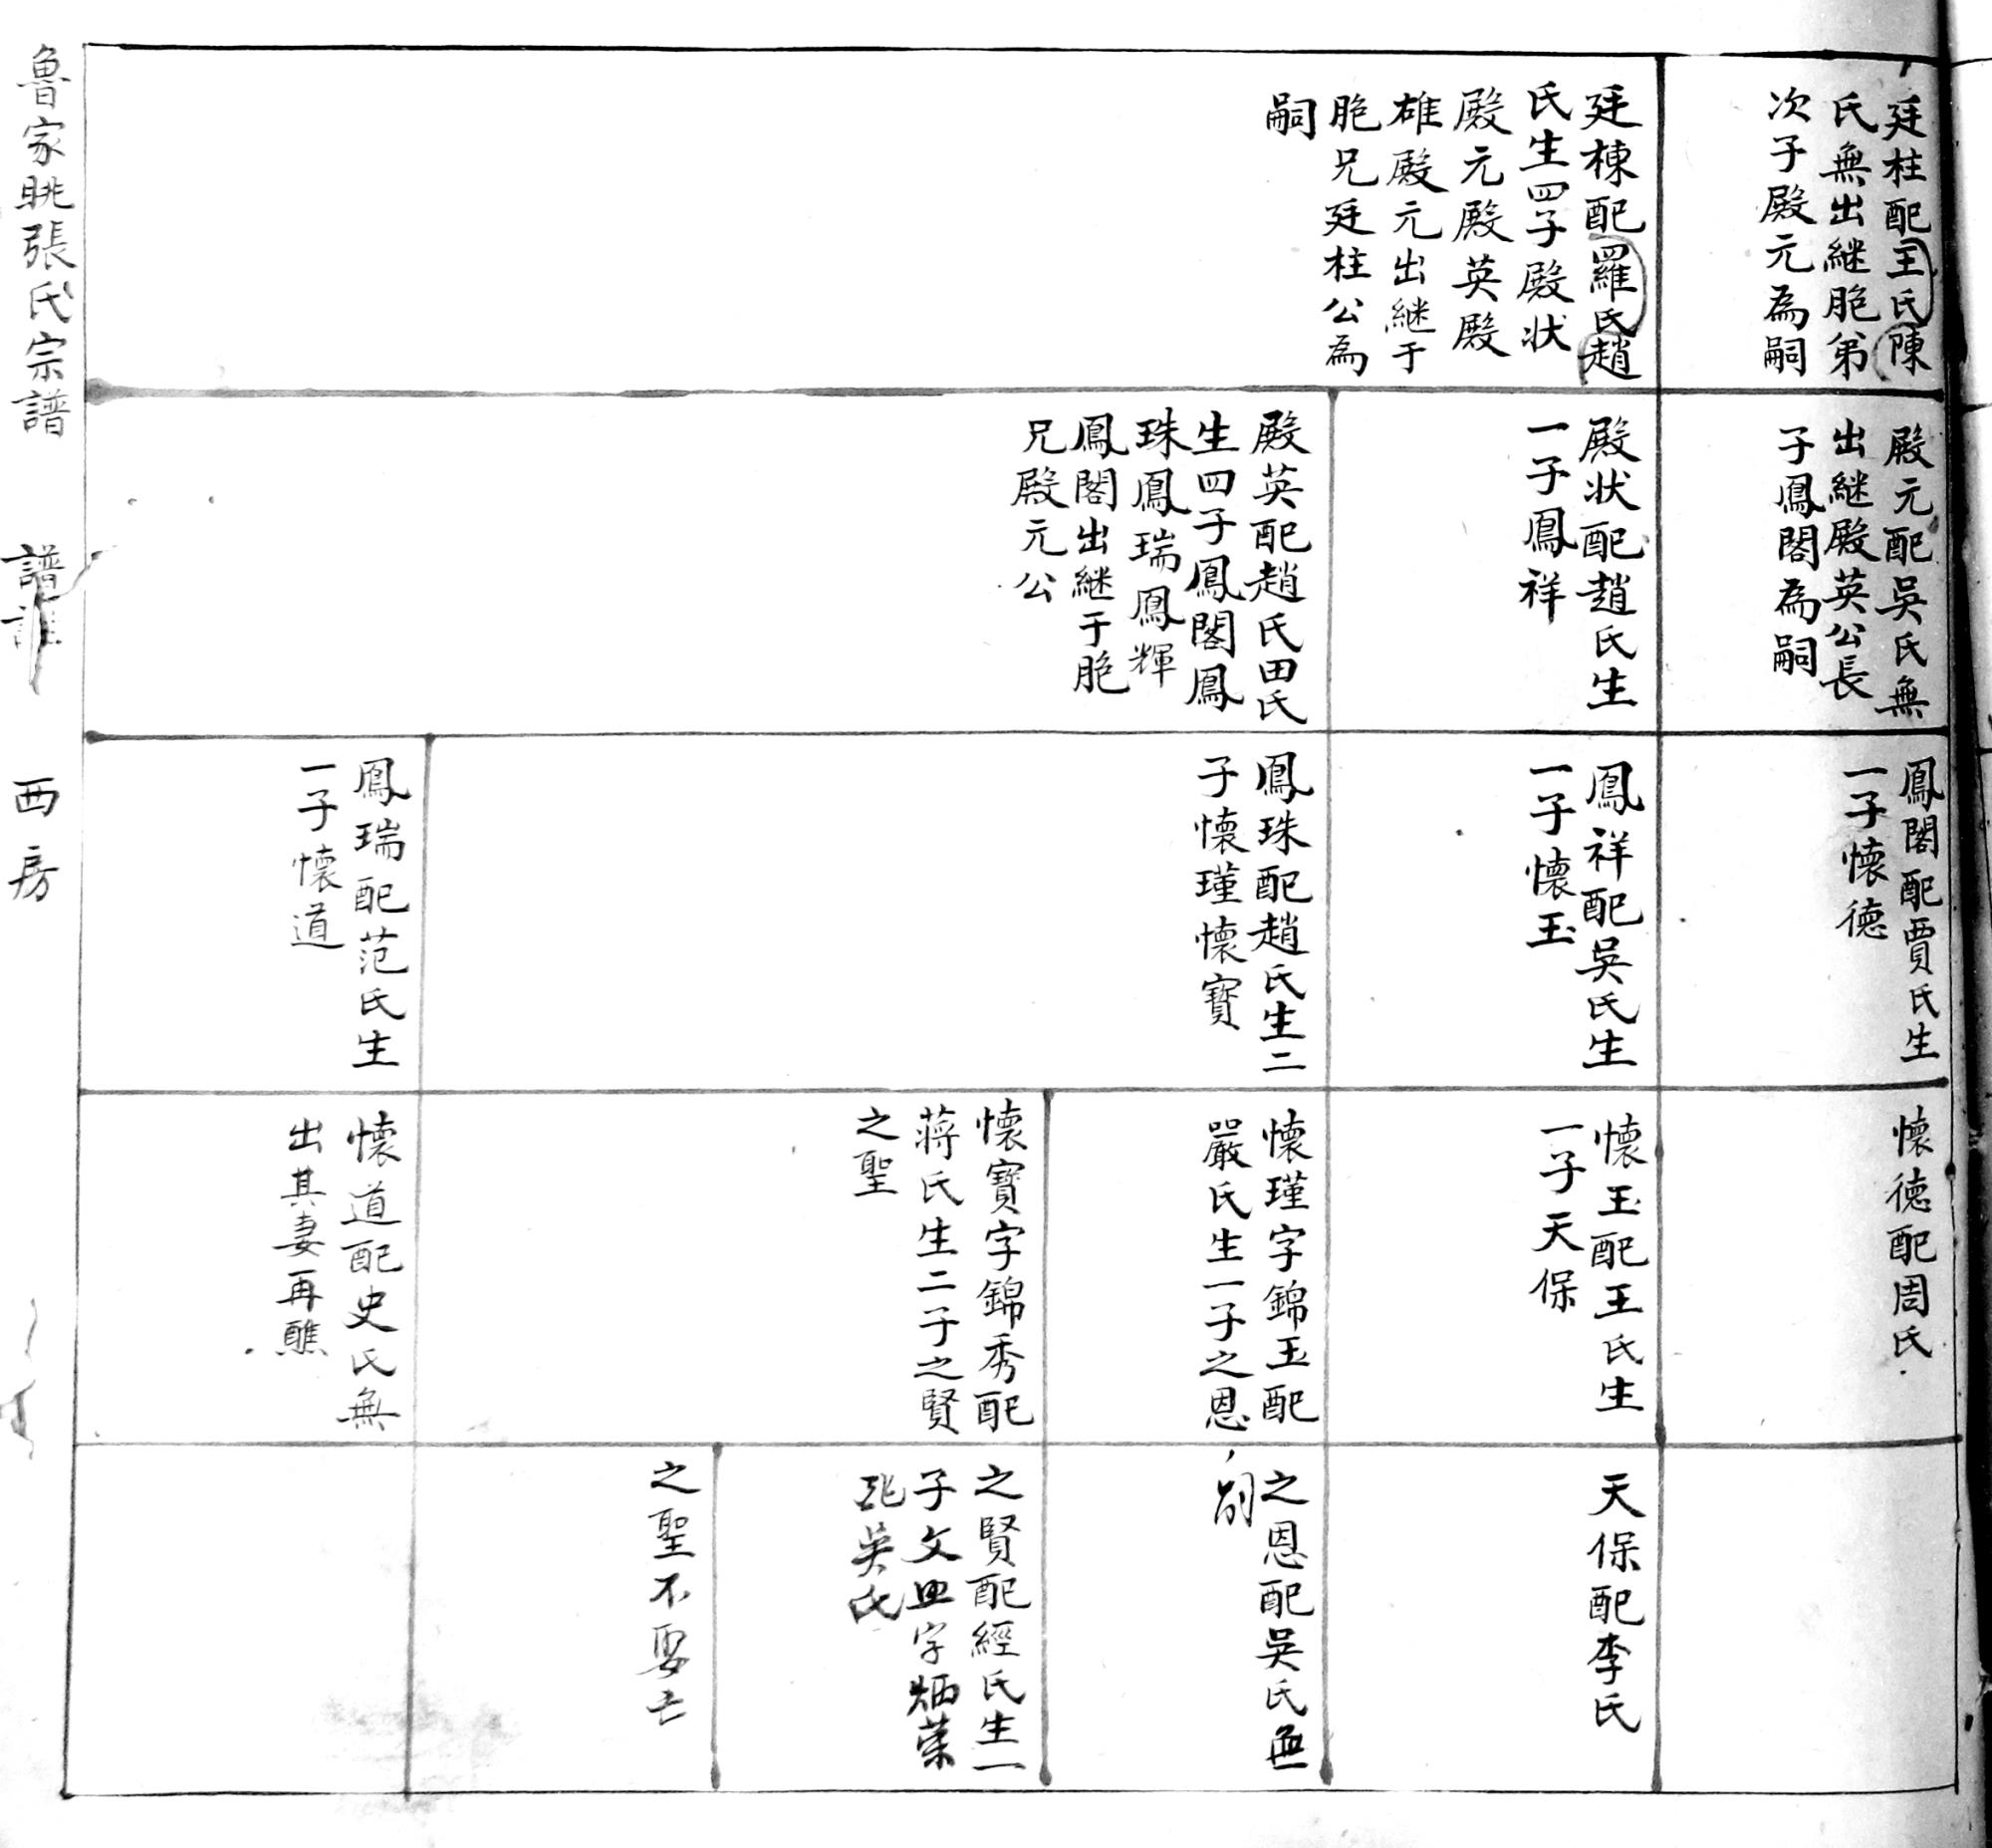 廷柱配王氏陳
氏無出継胞弟
次子殿元為嗣
廷棟配羅氏趙
氏生四子殿状
殿元殿英殿
雄殿元出継于
胞兄廷柱公為
嗣
殿元配吳氏無
出継殿英公長
子鳳閣為嗣
殿状配趙氏生
一子鳳祥
殿英配趙氏田氏
生四子鳳閣鳳
珠鳳瑞鳳輝
鳳閣出継于胞
兄殿元公
鳳閣配賈氏生
一子懐德
鳳祥配吳氏生
一子懐玉
鳳珠配趙氏生二
子懐瑾懐寳
鳳瑞配范氏生
一子懐道
懐德配周氏
懐玉配王氏生
一子天保
懐瑾字錦玉配
嚴氏生一子之恩
懐寳字錦秀配
蔣氏生二子之賢
之聖
懐道配史氏無
出其妻再醮
天保配李氏
之恩配吳氏無
嗣
之賢配經氏生一
子文字炳荣
配吴氏
之聖不娶亡
魯家眺張氏宗譜
譜
西房